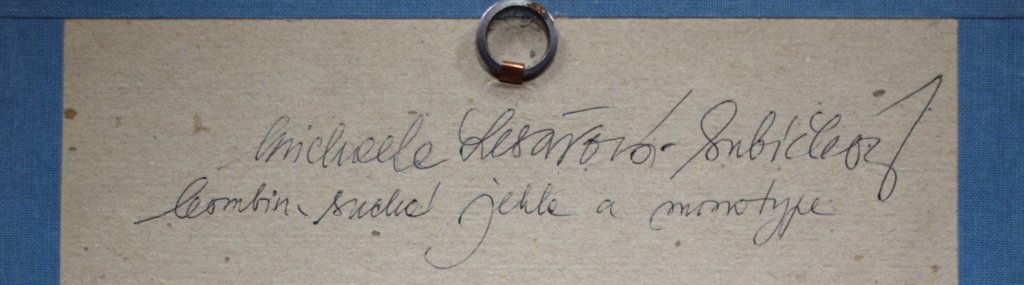 Michaela Lesařová-Roubíčková
kombin. suchá jehla a monotype